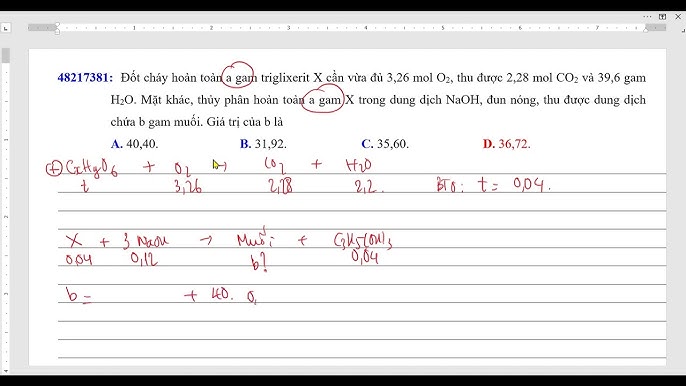 48217381: Đốt cháy hoàn toàn a gam triglixerit X cần vừa đủ 3,26 mol O₂, thu được 2,28 mol CO₂ và 39,6 gam
H₂O. Mặt khác, thủy phân hoàn toàn a gam X trong dung dịch NaOH, đun nóng, thu được dung dịch
chứa b gam muối. Giá trị của b là
A. 40,40. B. 31,92. C. 35,60. D. 36,72.
+ CxHyO6 + O2 → CO2 + H2O
t 3,26 2,28 2,2 BTO: t = 0,04.
X + 3 NaOH → Muối + C3H5(OH)3
0,04 0,12 b? 0,04
b = + 40. 0,